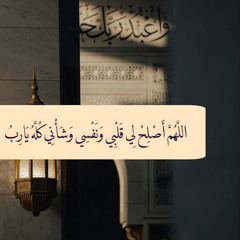 وَاعْبُدْ رَبَّكَ حَتَّىٰ
اللَّهُمَّ أَصْلِحْ لِي قَلْبِي وَنَفْسِي وَشَأْنِي كُلَّهُ يَا رِبُ